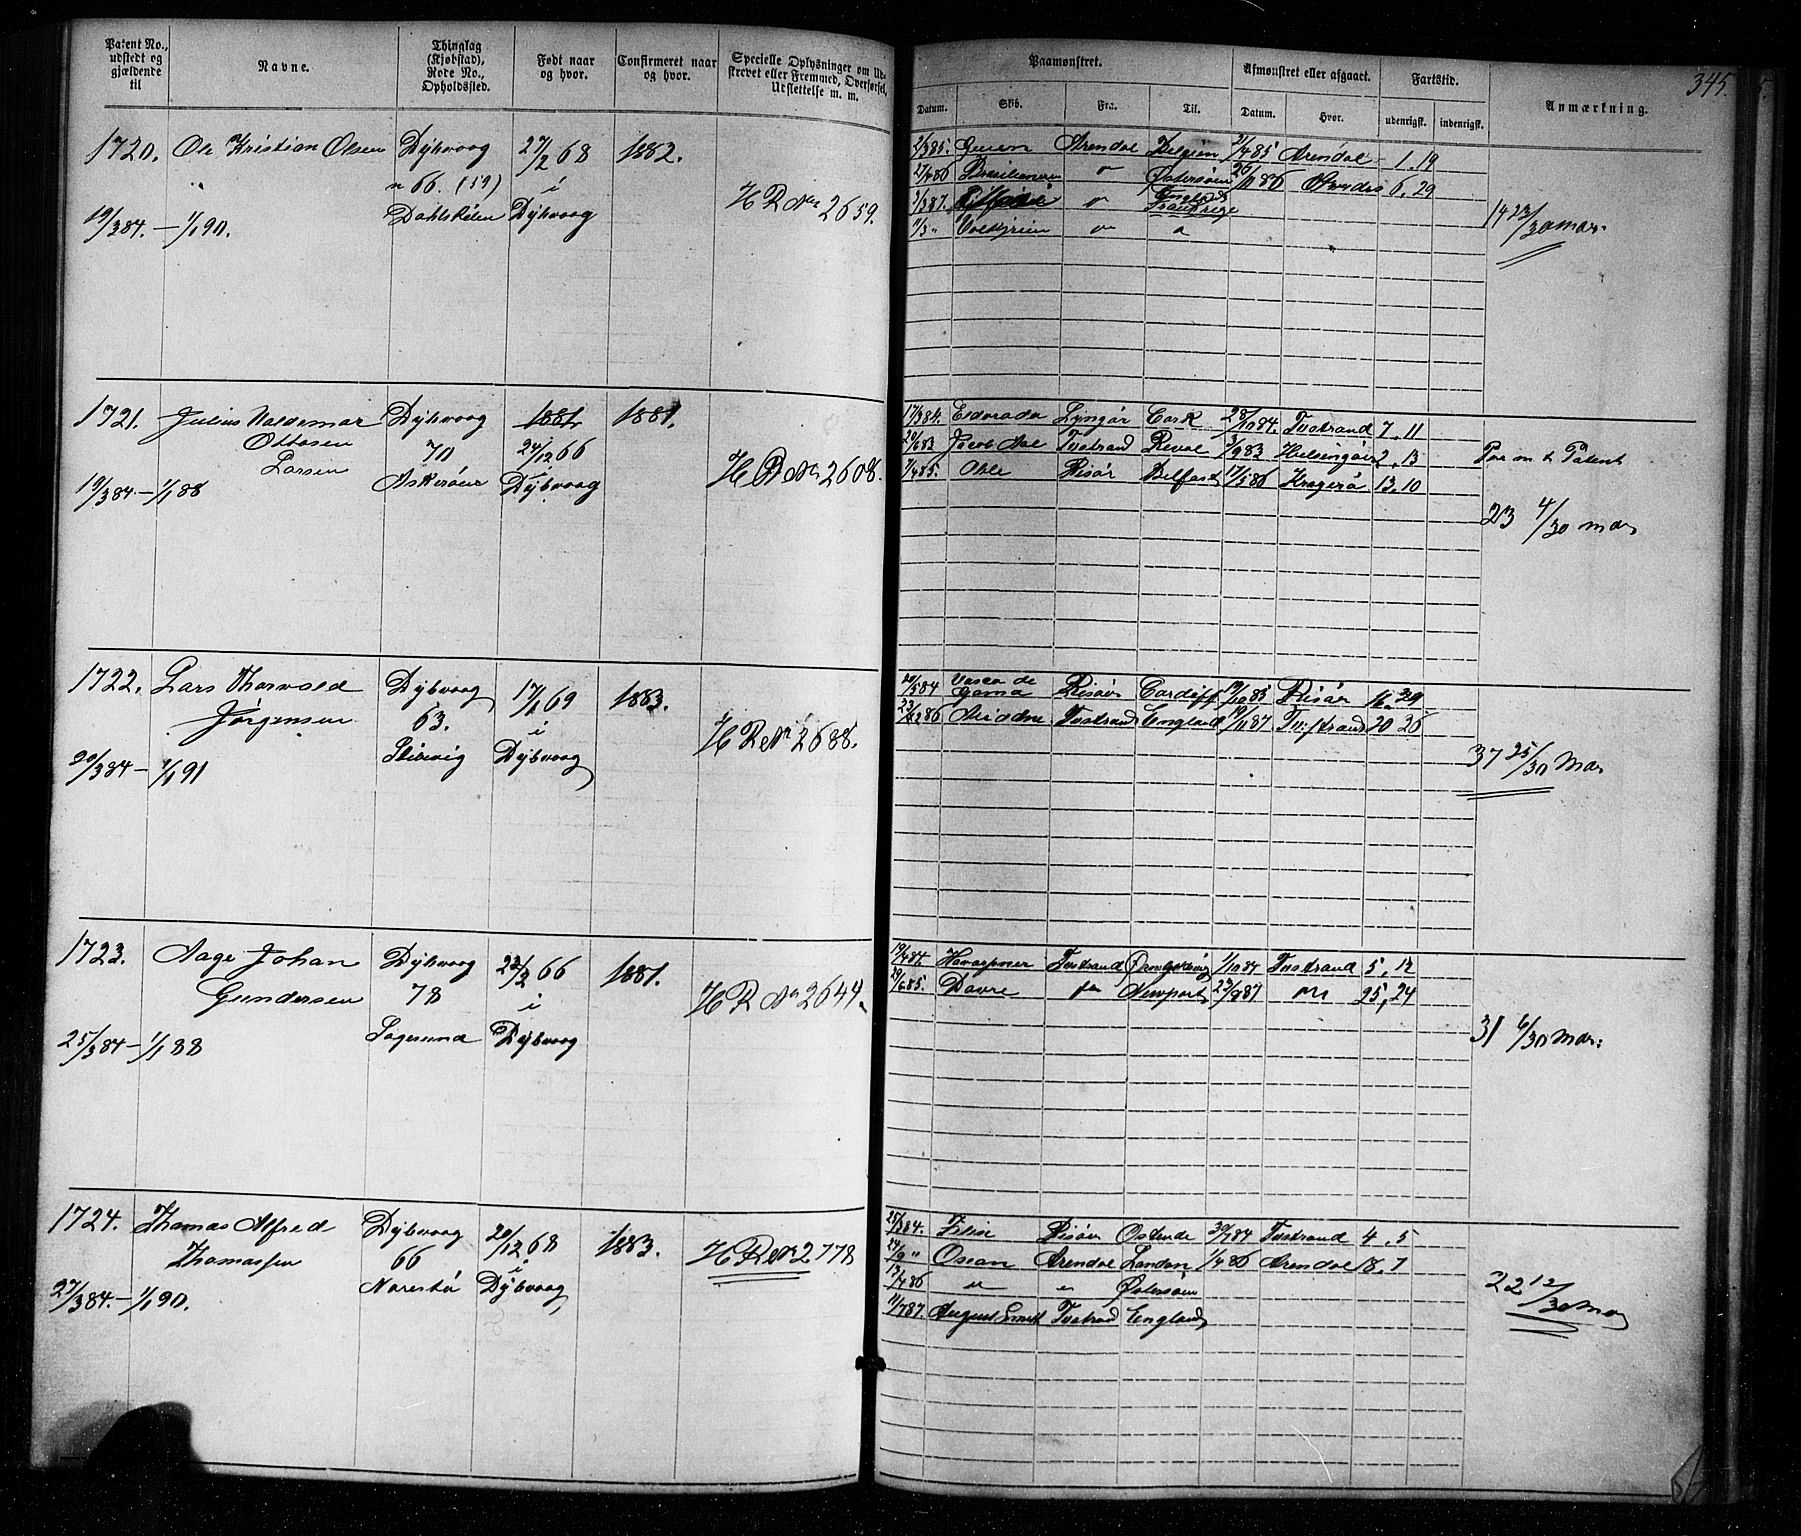 Patent No., udstedt og gjældende til
Navne.
Thinglag (Kjøbstad), Rode No., Opholdssted.
Født naar og hvor.
Confirmeret naar og hvor.
Specielle Oplysninger om Udskrevet eller Fremmed, Overførsel, Udslettelse m. m.
Paamønstret.
Afmønstret eller afgaaet.
Fartstid.
Anmærkning.
345.
Datum.
Skib.
Fra.
Til.
Datum.
Hvor.
udenrigsk.
indenrigsk.
1720. Ole Kristian Olsen Dybvaag 27/2 68 1882.
n 66. (59) i
19/3 84. — 1/1 90. Dahlskilen Dybvaag
H R No 2659.
2/3 85. Arendal Belgien 21/4 85 Arendal 1, 19
27/4 86 Brasilianeren " Østersøen 26/11 86 6, 29
1/3 87. " England Frankrige
1/5 " " "
14 23/30 mdr.
1721. Julius Valdemar Dybvaag 1881. 1881.
Ottosen 70 24/12 66
Larsen i
19/3 84. — 1/1 88 Askerøen Dybvaag
H R No 2608.
17/3 84. Eldorado Lyngør Cork 28/10 84. Tvestrand 7, 11
20/6 83 Jacob Aal Tvestrand Reval 3/9 83 Helsingør 2, 13
7/4 85. Risør Belfast 17/5 86 Kragerø 13, 10
Paa m t Patent
23 4/30 mdr
1722. Lars Thorvald Dybvaag 17/1 69 1883.
Jørgensen 63. i
20/3 84 — 1/1 91 Dybvaag
H R No 2688.
20/5 84 Vasco de Gama Risør Cardiff 19/10 85 Risør 16 29
22/2 86 Ariadne Tvestrand England 19/11 87 Tvestrand 20 26
37 25/30 Mdr
1723. Aage Johan Dybvaag 22/2 66 1881.
Gundersen 78 i
25/3 84 — 1/1 88 Sagesund Dybvaag
H R No 2644.
19/4 84. Tvestrand 1/10 84 Tvestrand 5, 12
29/6 85. Dovre Newport 23/8 87 25, 24
31 6/30 Mdr.
1724. Thomas Alfred Dybvaag 20/12 68 1883.
Thomassen 66 i
27/3 84. — 1/1 90. Narestø Dybvaag
H R No 2778
25/3 84. Elise Risør Ostende 30/7 84 Tvestrand 4, 5
24/9 " Oscar Arendal London 1/4 86 Arendal 18, 7
13/4 86 " " Østersøen
11/7 87. August Smith Tvestrand England
22 12/30 Mdr